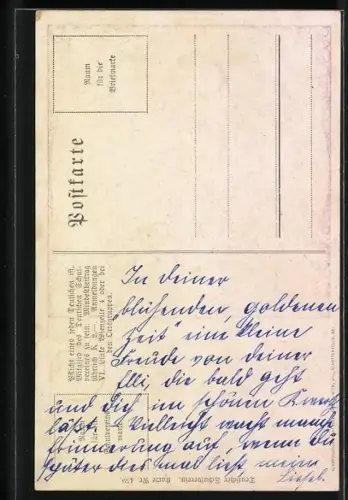 Postkarte
Raum
für die
Briefmarke
Pflicht eines jeden Deutschen ist,
Mitglied des Deutschen Schul-
vereines zu sein. Mindestbeitrag
jährlich K 2.—. Anmeldungen
VI. Linke Wienzeile 4 oder bei
den Ortsgruppen.
Deutscher Schulverein Karte Nr.
In deiner
„blühenden, goldenen
Zeit" eine kleine
Freude von deiner
Elli, die bald geht
und dich im schönen
läßt. Vielleicht wacht manche
Erinnerung auf, wenn du
später dies mal liest, meine
Liesel.